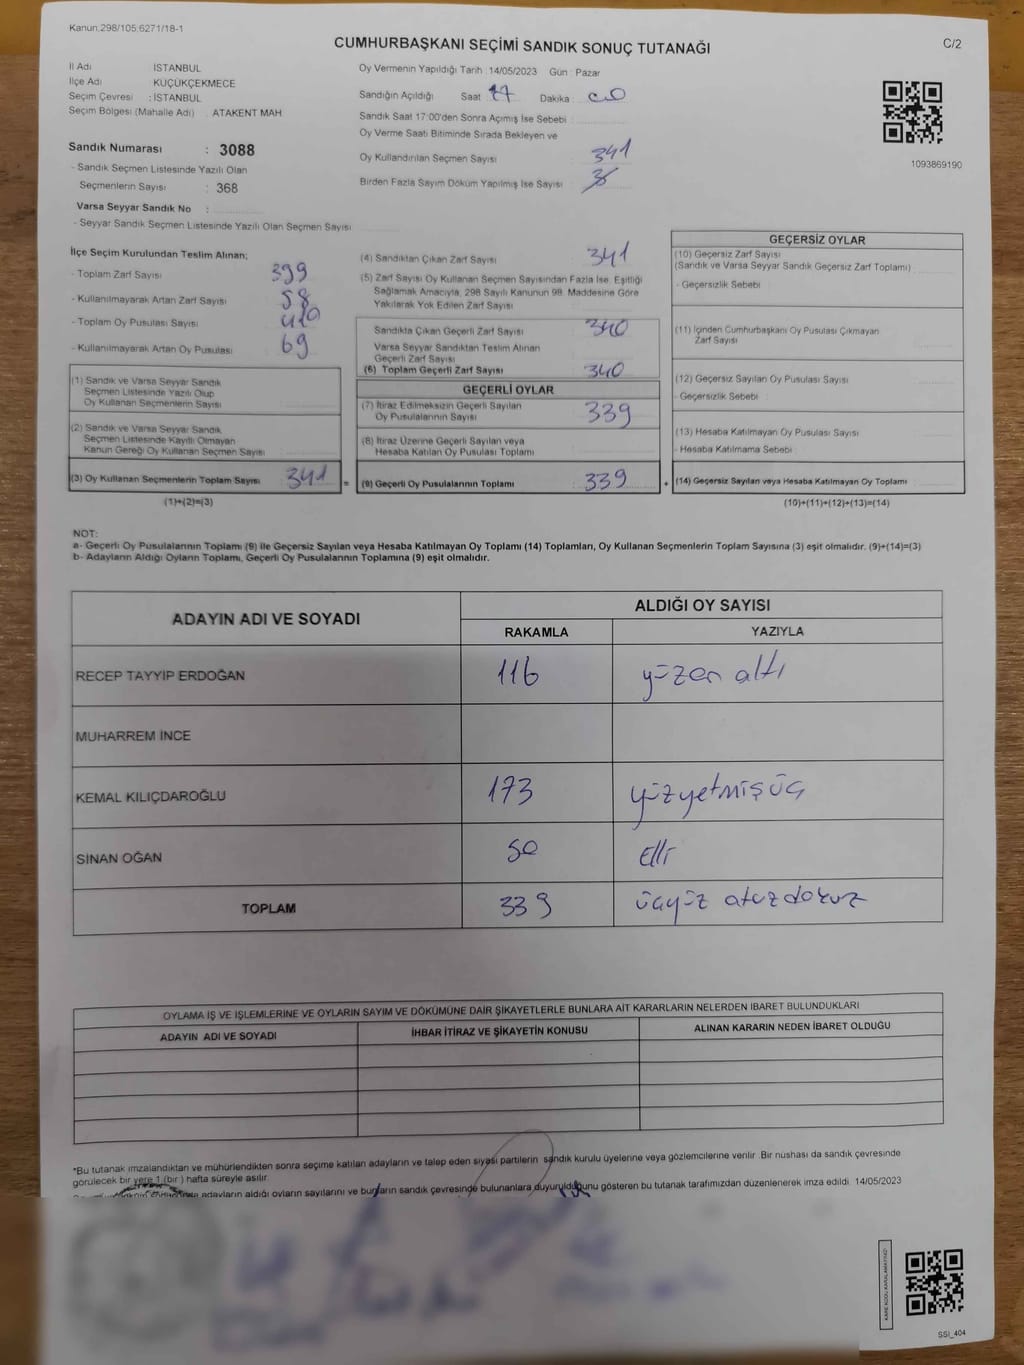 Kanun.298/105;6271/18-1
CUMHURBAŞKANI SEÇİMİ SANDIK SONUÇ TUTANAĞI
C/2
İl Adı İSTANBUL
İlçe Adı KÜÇÜKÇEKMECE
Seçim Çevresi : İSTANBUL
Seçim Bölgesi (Mahalle Adı) : ATAKENT MAH
Sandık Numarası : 3088
- Sandık Seçmen Listesinde Yazılı Olan
Seçmenlerin Sayısı : 368
Varsa Seyyar Sandık No :
- Seyyar Sandık Seçmen Listesinde Yazılı Olan Seçmen Sayısı
Oy Vermenin Yapıldığı Tarih : 14/05/2023 Gün : Pazar
Sandığın Açıldığı Saat 17 Dakika : 00
Sandık Saat 17:00'den Sonra Açımış İse Sebebi :
Oy Verme Saati Bitiminde Sırada Bekleyen ve
Oy Kullandırılan Seçmen Sayısı 341
Birden Fazla Sayım Döküm Yapılmış İse Sayısı
1093869190
İlçe Seçim Kurulundan Teslim Alınan;
- Toplam Zarf Sayısı 399
- Kullanılmayarak Artan Zarf Sayısı 58
- Toplam Oy Pusulası Sayısı 410
- Kullanılmayarak Artan Oy Pusulası 69
(1) Sandık ve Varsa Seyyar Sandık
Seçmen Listesinde Yazılı Olup
Oy Kullanan Seçmenlerin Sayısı
(2) Sandık ve Varsa Seyyar Sandık
Seçmen Listesinde Kayıtlı Olmayan
Kanun Gereği Oy Kullanan Seçmen Sayısı
(3) Oy Kullanan Seçmenlerin Toplam Sayısı 341
(1)+(2)=(3)
(4) Sandıktan Çıkan Zarf Sayısı 341
(5) Zarf Sayısı Oy Kullanan Seçmen Sayısından Fazla İse, Eşitliği
Sağlamak Amacıyla, 298 Sayılı Kanunun 98. Maddesine Göre
Yakılarak Yok Edilen Zarf Sayısı
Sandıkta Çıkan Geçerli Zarf Sayısı 340
Varsa Seyyar Sandıktan Teslim Alınan
Geçerli Zarf Sayısı
(6) Toplam Geçerli Zarf Sayısı 340
GEÇERLİ OYLAR
(7) İtiraz Edilmeksizin Geçerli Sayılan
Oy Pusulalarının Sayısı 339
(8) İtiraz Üzerine Geçerli Sayılan veya
Hesaba Katılan Oy Pusulası Toplamı
= (9) Geçerli Oy Pusulalarının Toplamı : 339
GEÇERSİZ OYLAR
(10) Geçersiz Zarf Sayısı
(Sandık ve Varsa Seyyar Sandık Geçersiz Zarf Toplamı)
- Geçersizlik Sebebi
(11) İçinden Cumhurbaşkanı Oy Pusulası Çıkmayan
Zarf Sayısı
(12) Geçersiz Sayılan Oy Pusulası Sayısı
- Geçersizlik Sebebi
(13) Hesaba Katılmayan Oy Pusulası Sayısı
- Hesaba Katılmama Sebebi
+ (14) Geçersiz Sayılan veya Hesaba Katılmayan Oy Toplamı
(10)+(11)+(12)+(13)=(14)
NOT:
a- Geçerli Oy Pusulalarının Toplamı (9) ile Geçersiz Sayılan veya Hesaba Katılmayan Oy Toplamı (14) Toplamları, Oy Kullanan Seçmenlerin Toplam Sayısına (3) eşit olmalıdır. (9)+(14)=(3)
b- Adayların Aldığı Oyların Toplamı, Geçerli Oy Pusulalarının Toplamına (9) eşit olmalıdır.
ADAYIN ADI VE SOYADI
ALDIĞI OY SAYISI
RAKAMLA YAZIYLA
RECEP TAYYİP ERDOĞAN 116 yüzon altı
MUHARREM İNCE
KEMAL KILIÇDAROĞLU 173 yüzyetmişüç
SİNAN OĞAN 50 Elli
TOPLAM 339 üçyüz otuzdokuz
OYLAMA İŞ VE İŞLEMLERİNE VE OYLARIN SAYIM VE DÖKÜMÜNE DAİR ŞİKAYETLERLE BUNLARA AİT KARARLARIN NELERDEN İBARET BULUNDUKLARI
ADAYIN ADI VE SOYADI İHBAR İTİRAZ VE ŞİKAYETİN KONUSU ALINAN KARARIN NEDEN İBARET OLDUĞU
*Bu tutanak imzalandıktan ve mühürlendikten sonra seçime katılan adayların ve talep eden siyasi partilerin sandık kurulu üyelerine veya gözlemcilerine verilir. Bir nüshası da sandık çevresinde
görülecek bir yere 1 (bir) hafta süreyle asılır.
adayların aldığı oyların sayılarını ve bunların sandık çevresinde bulunanlara duyurulduğunu gösteren bu tutanak tarafımızdan düzenlenerek imza edildi. 14/05/2023
KARE KODU KARALAMAYINIZ!
SSİ_404